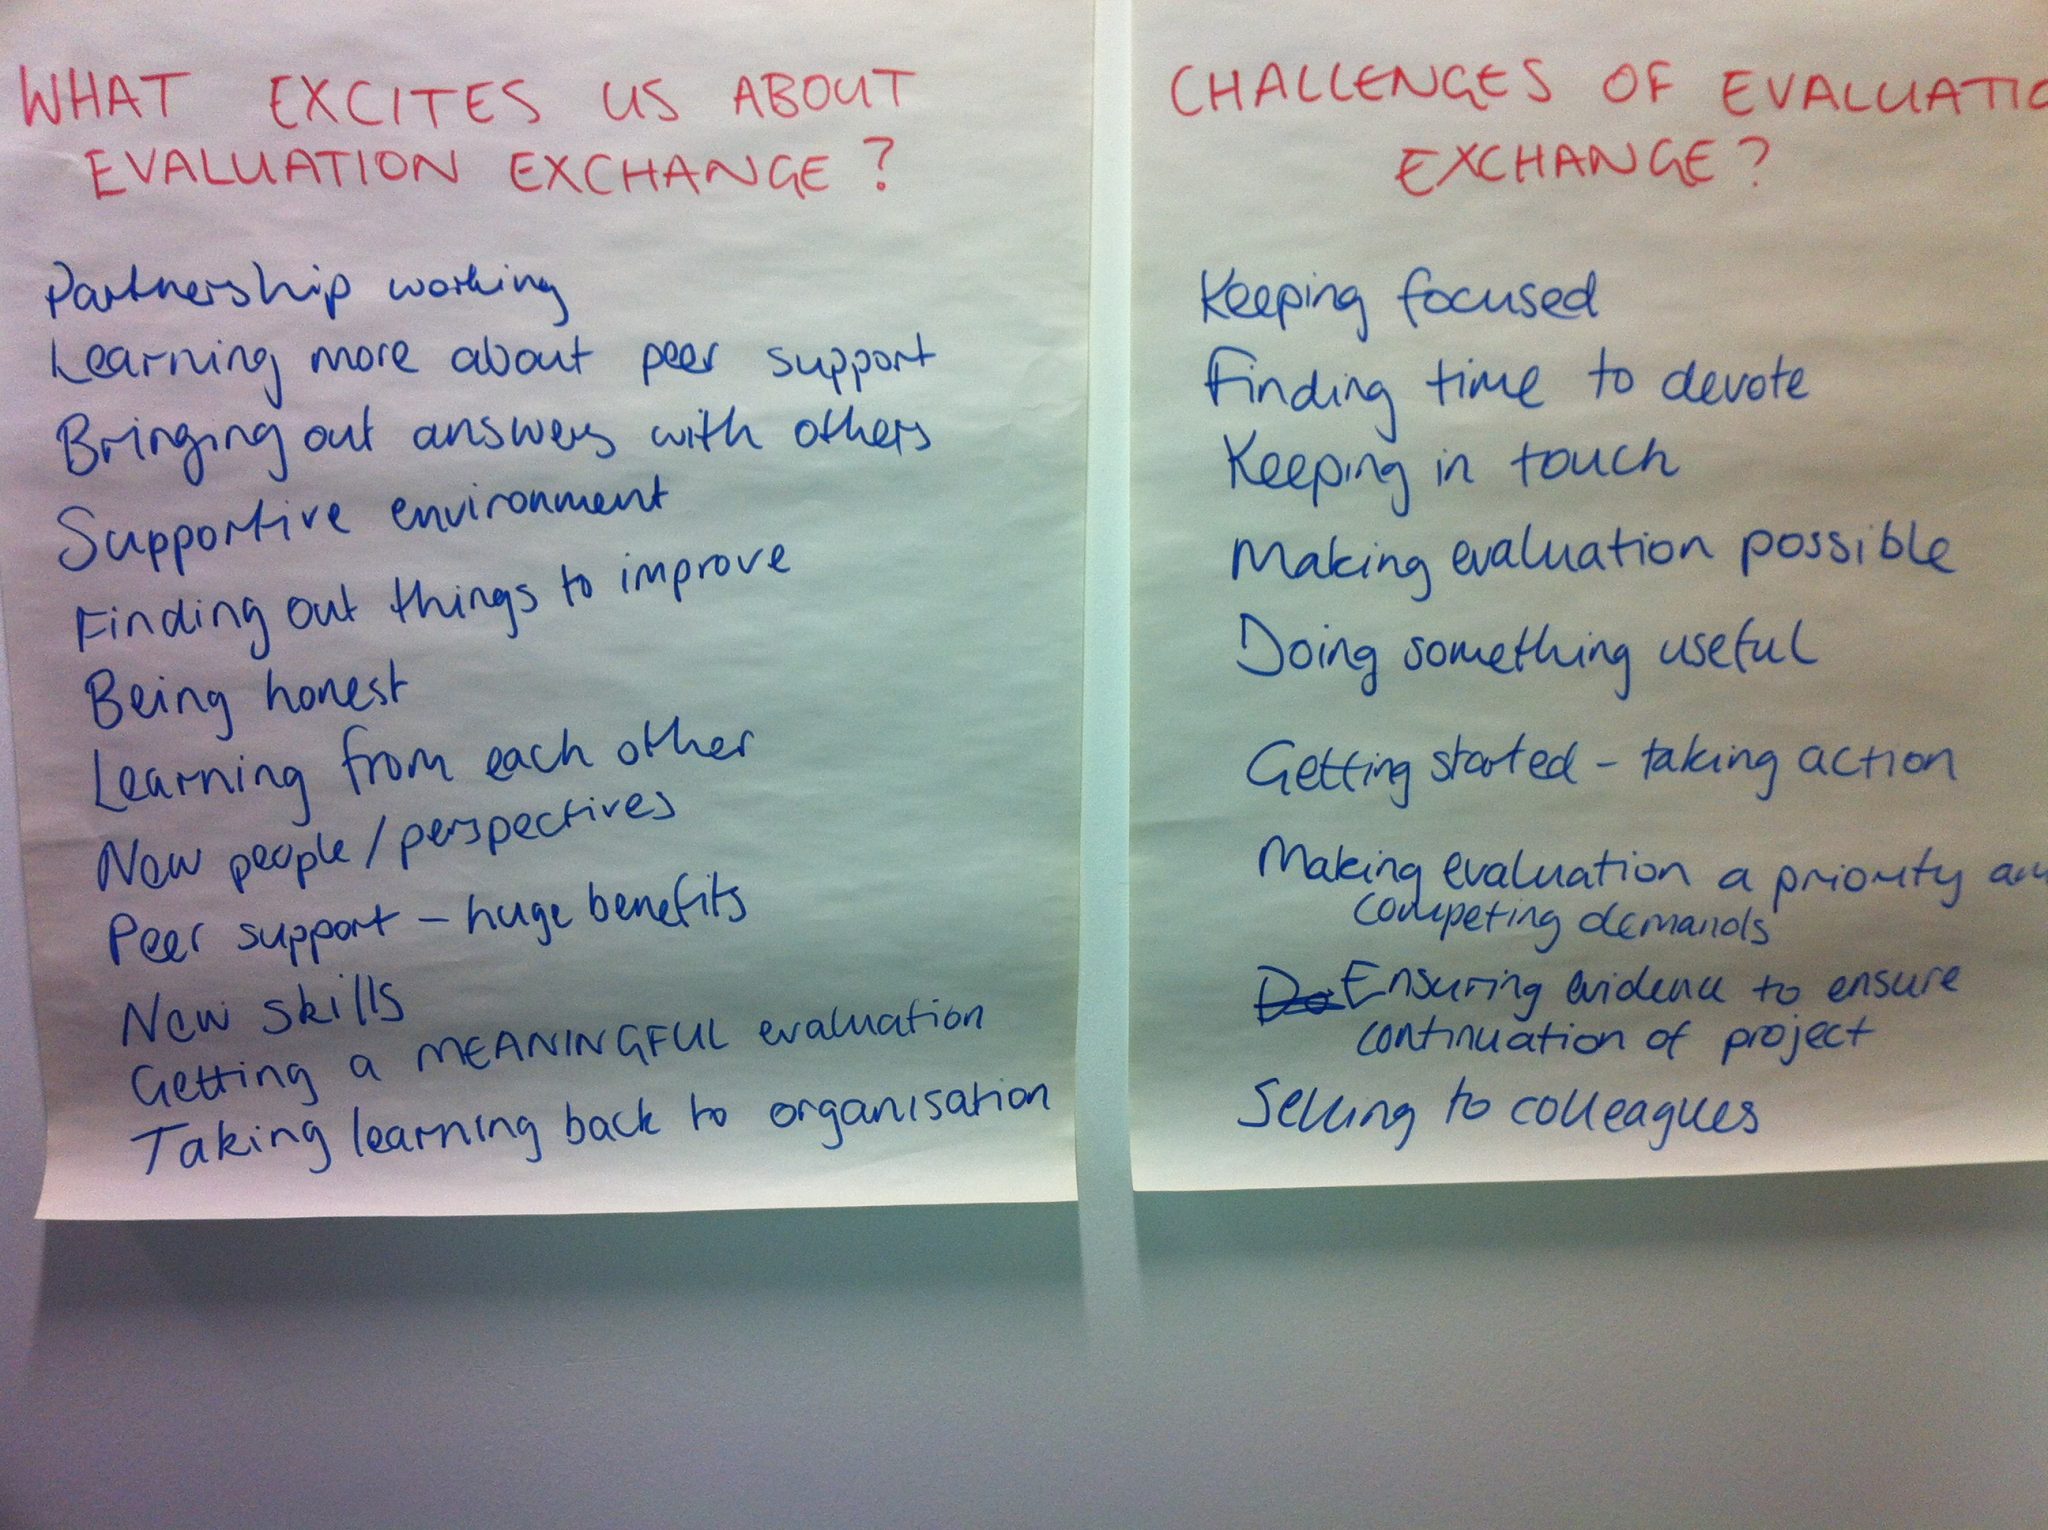 WHAT EXCITES US ABOUT
EVALUATION EXCHANGE?
Partnership working
Learning more about peer support
Bringing out answers with others
Supportive environment
Finding out things to improve
Being honest
Learning from each other
New people/perspectives
Peer support - huge benefits
New skills
Getting a MEANINGFUL evaluation
Taking learning back to organisation
CHALLENGES OF EVALUATIO
EXCHANGE?
Keeping focused
Finding time to devote
Keeping in touch
Making evaluation possible
Doing something useful
Getting started - taking action
Making evaluation a priority
competing demands
Ensuring evidence to ensure
continuation of project
Selling to colleagues